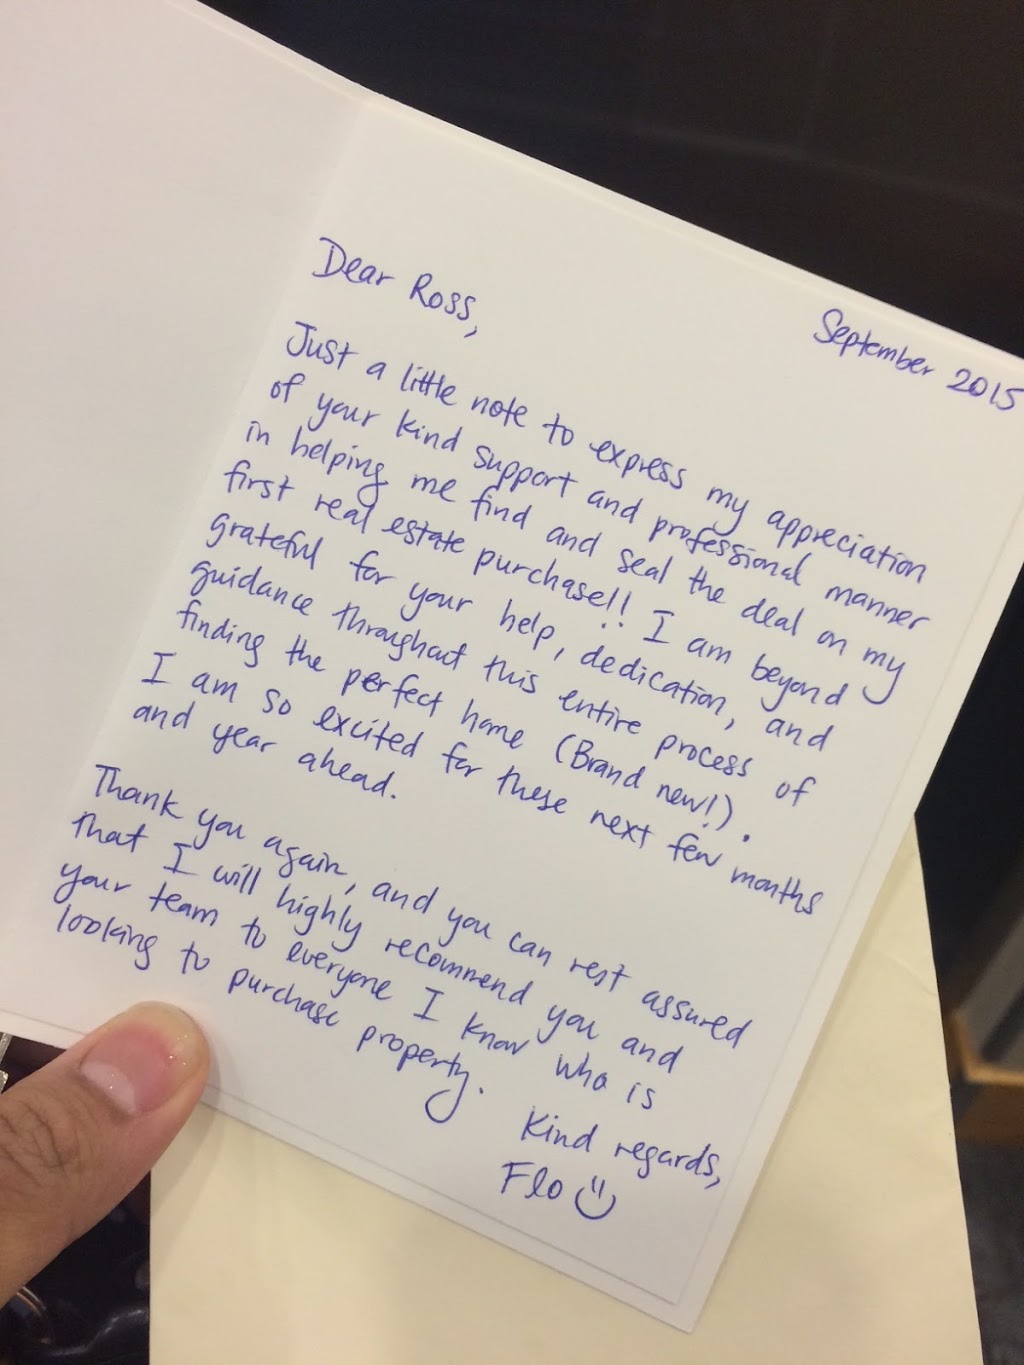 September 2015
Dear Ross,
Just a little note to express my appreciation
of your kind support and professional manner
in helping me find and seal the deal on my
first real estate purchase!! I am beyond
grateful for your help, dedication, and
guidance throughout this entire process of
finding the perfect home (Brand new!).
I am so excited for these next few months
and year ahead.
Thank you again, and you can rest assured
that I will highly recommend you and
your team to everyone I know who is
looking to purchase property.
Kind regards,
Flo